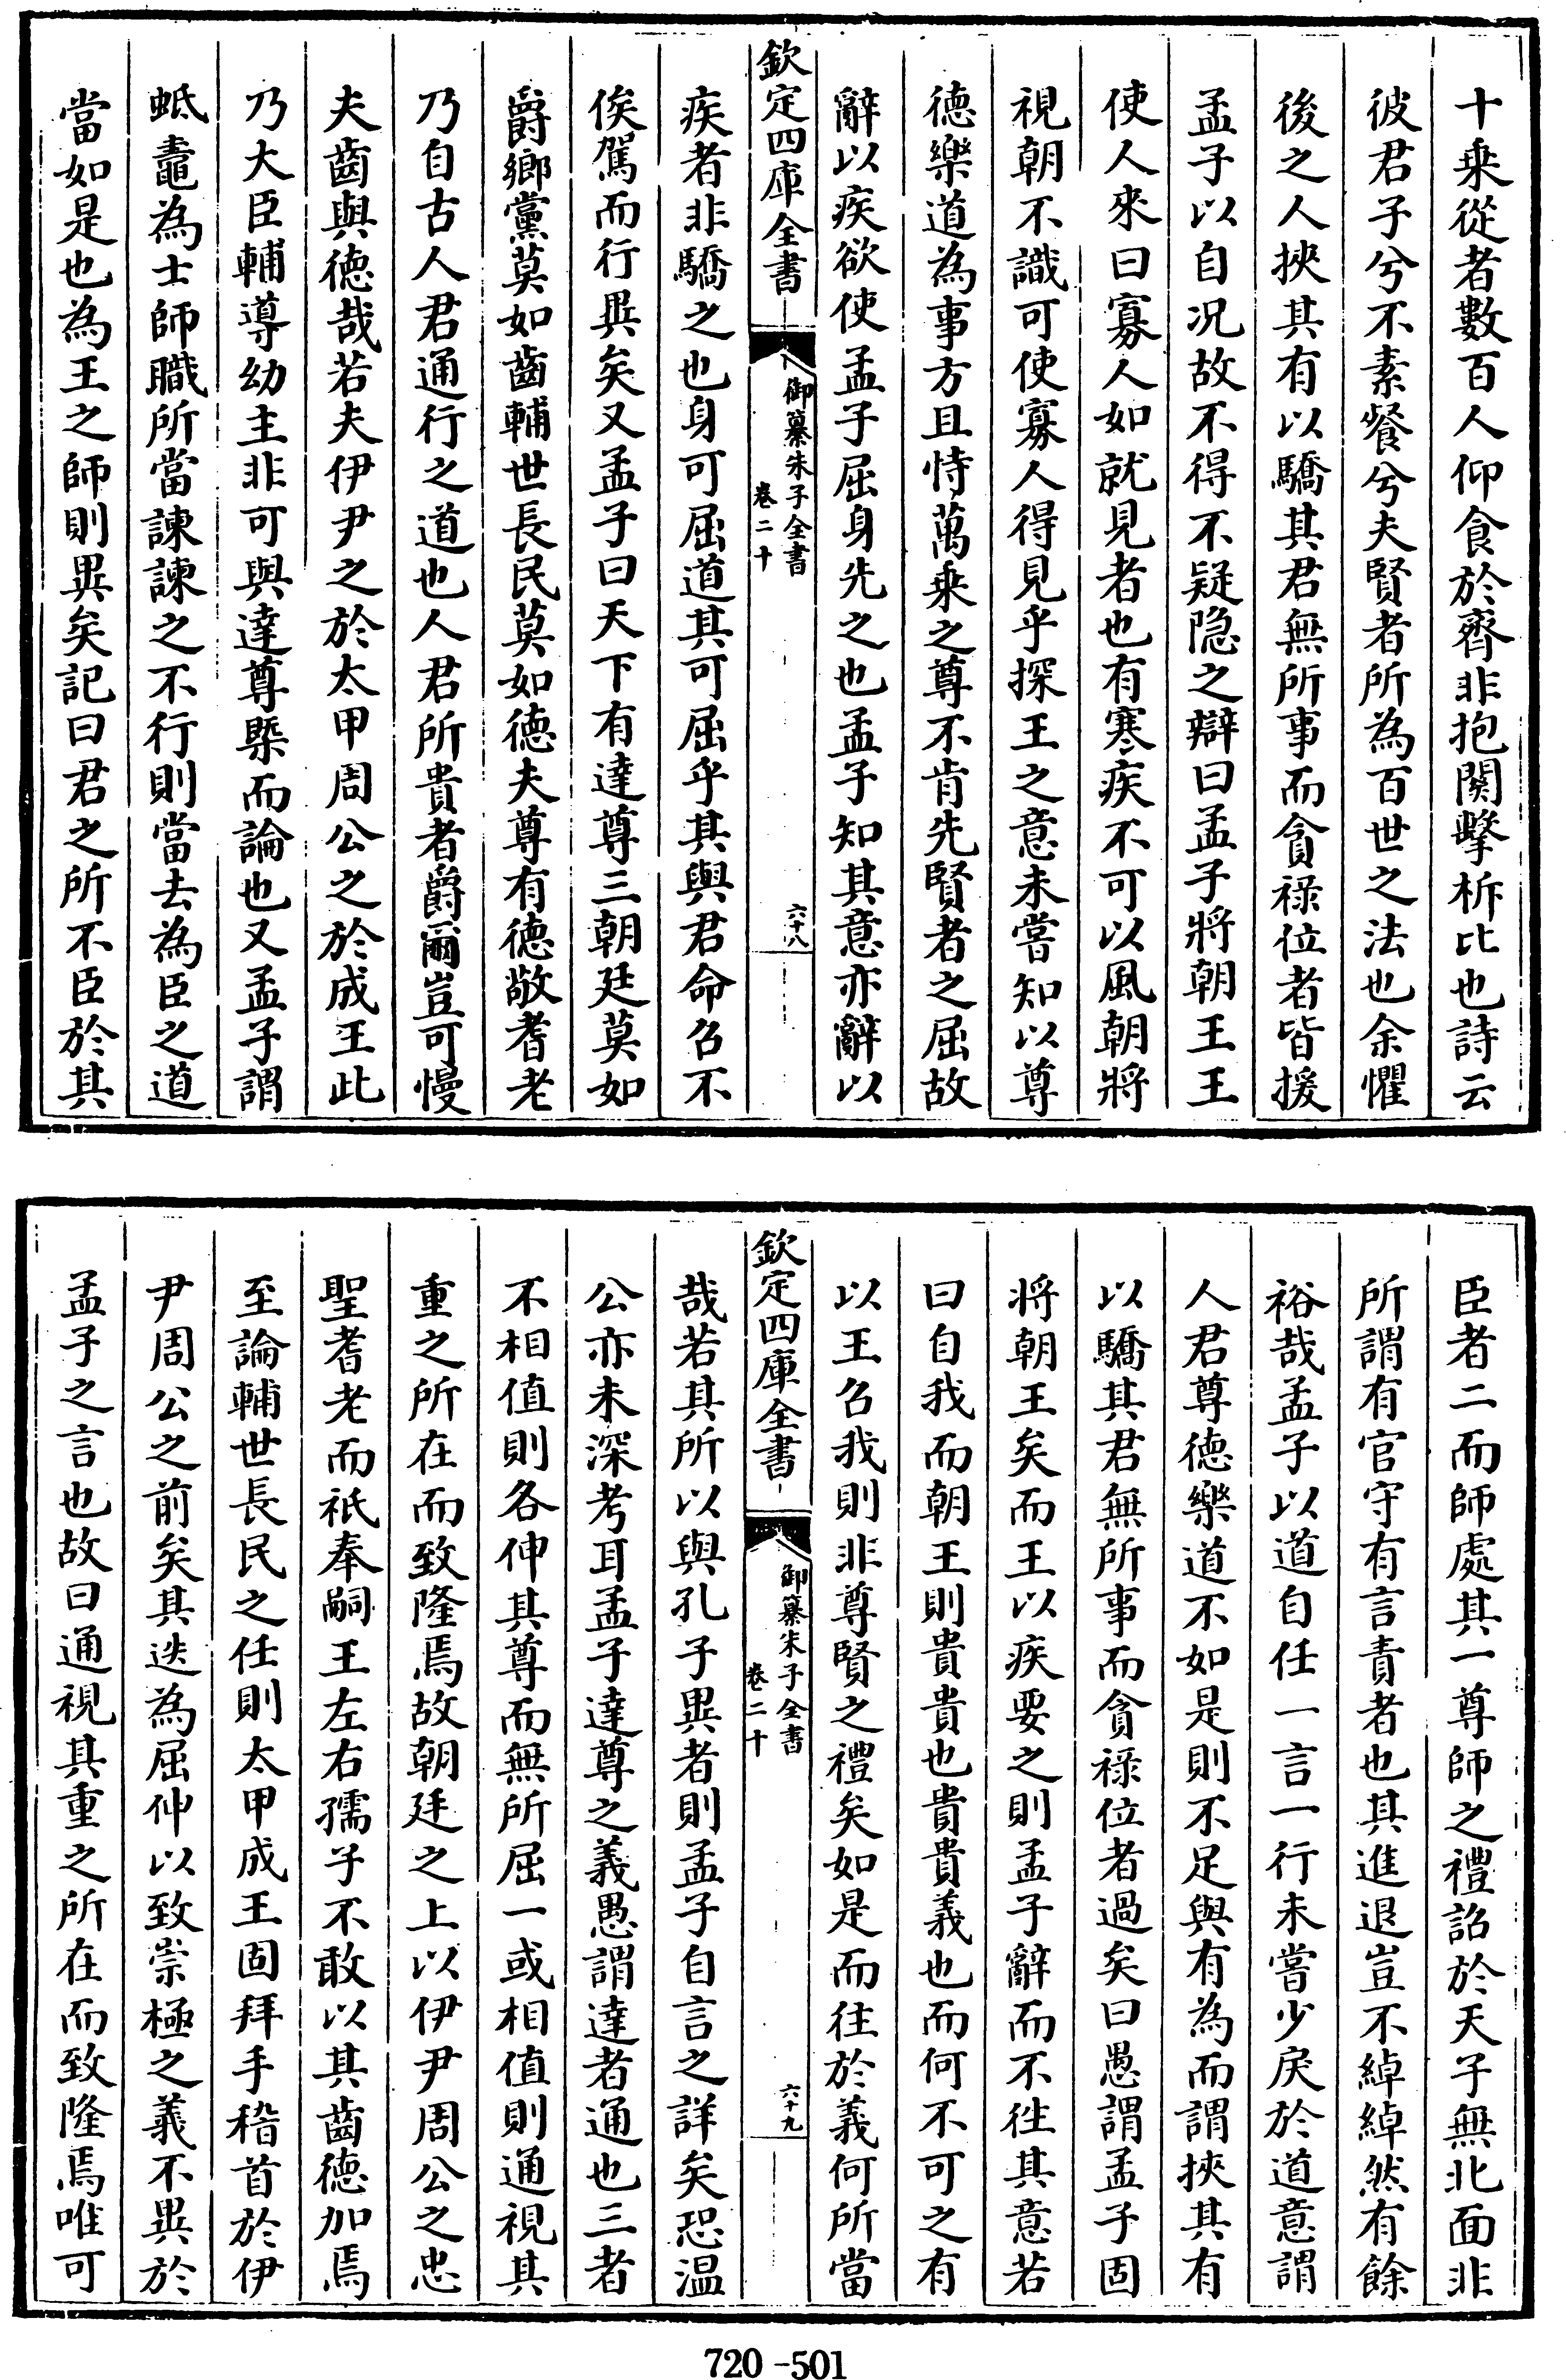 十乘從者數百人仰食於齊非抱關擊柝比也詩云
彼君子兮不素餐兮夫賢者所為百世之法也余懼
後之人挾其有以驕其君無所事而貪祿位者皆援
孟子以自况故不得不疑隠之辯曰孟子將朝王王
使人來曰寡人如就見者也有寒疾不可以風朝將
視朝不識可使寡人得見乎探王之意未嘗知以尊
德樂道為事方且恃萬乘之尊不肯先賢者之屈故
辭以疾欲使孟子屈身先之也孟子知其意亦辭以
欽定四庫全書
御纂朱子全書
卷二十
六十八
疾者非驕之也身可屈道其可屈乎其與君命召不
俟駕而行異矣又孟子曰天下有達尊三朝廷莫如
爵鄉黨莫如齒輔世長民莫如德夫尊有德敬耆老
乃自古人君通行之道也人君所貴者爵爾豈可慢
夫齒與德哉若夫伊尹之於太甲周公之於成王此
乃大臣輔導幼主非可與達尊槩而論也又孟子謂
蚳鼃為士師職所當諫諫之不行則當去為臣之道
當如是也為王之師則異矣記曰君之所不臣於其
臣者二而師處其一尊師之禮詔於天子無北面非
所謂有官守有言責者也其進退豈不綽綽然有餘
裕哉孟子以道自任一言一行未嘗少戾於道意謂
人君尊德樂道不如是則不足與有為而謂挾其有
以驕其君無所事而貪祿位者過矣曰愚謂孟子固
將朝王矣而王以疾要之則孟子辭而不徃其意若
曰自我而朝王則貴貴也貴貴義也而何不可之有
以王召我則非尊賢之禮矣如是而往於義何所當
欽定四庫全書
御纂朱子全書
卷二十
六十九
哉若其所以與孔子異者則孟子自言之詳矣恐温
公亦未深考耳孟子達尊之義愚謂達者通也三者
不相值則各伸其尊而無所屈一或相值則通視其
重之所在而致隆焉故朝廷之上以伊尹周公之忠
聖耆老而祇奉嗣王左右孺子不敢以其齒德加焉
至論輔世長民之任則太甲成王固拜手稽首於伊
尹周公之前矣其迭為屈伸以致崇極之義不異於
孟子之言也故曰通視其重之所在而致隆焉唯可
720-501